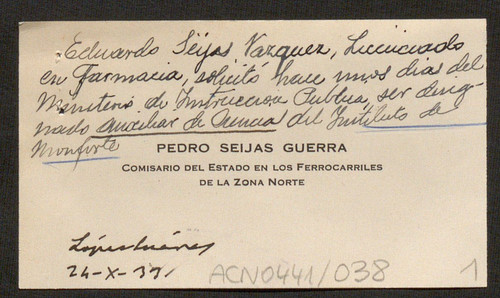 Eduardo Seijas Vazquez, Licenciado
en Farmacia, solicitó hace unos dias del
Ministerio de Instruccion Publica, ser desig-
nado Auxiliar de Ciencias del Instituto de
Monforte
PEDRO SEIJAS GUERRA
COMISARIO DEL ESTADO EN LOS FERROCARRILES
DE LA ZONA NORTE
24-X-33
ACN0441/038
1